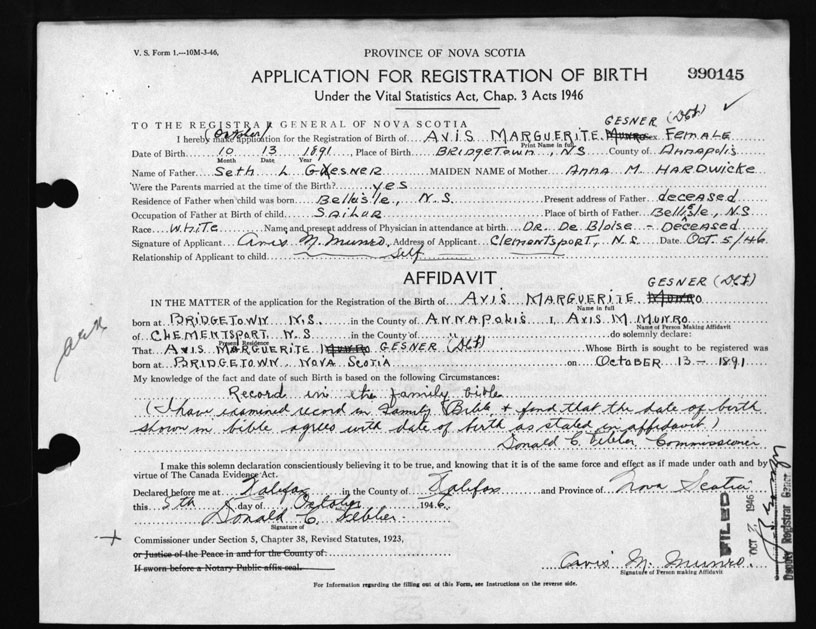 V. S. Form 1.—10M-3-46.
PROVINCE OF NOVA SCOTIA
APPLICATION FOR REGISTRATION OF BIRTH
990145
Under the Vital Statistics Act, Chap. 3 Acts 1946
GESNER
TO THE REGISTRAR GENERAL OF NOVA SCOTIA
(October)
I hereby make application for the Registration of Birth of AVIS MARGUERITE MUNRO Sex FEMALE
Print Name in full
Date of Birth 10 13 1891, Place of Birth BRIDGETOWN, N.S County of ANNAPOLIS
Month Date Year
Name of Father SETH L GESNER MAIDEN NAME of Mother ANNA M HARDWICKE
Were the Parents married at the time of the Birth? yes
Residence of Father when child was born Belleisle, N.S. Present address of Father deceased
Occupation of Father at Birth of child SAILOR Place of birth of Father Bellisle, N.S
Race WHITE Name and present address of Physician in attendance at birth DR. De Bloise - Deceased
Signature of Applicant Avis M. Munro, Address of Applicant Clementsport, N.S. Date Oct. 5/46
Relationship of Applicant to child Self
AFFIDAVIT
GESNER
IN THE MATTER of the application for the Registration of the Birth of AVIS MARGUERITE MUNRO
Name in full
born at BRIDGETOWN N.S. in the County of ANNAPOLIS I, AVIS M MUNRO
Name of Person Making Affidavit
of CLEMENTSPORT, N.S in the County of " do solemnly declare:
Present Residence
That AVIS MARGUERITE MUNRO GESNER Whose Birth is sought to be registered was
born at BRIDGETOWN, NOVA SCOTIA on OCTOBER 13 - 1891
My knowledge of the fact and date of such Birth is based on the following Circumstances:
Record in the family bible
(I have examined record in Family Bible & fond that the date of birth
shown in bible agrees with date of birth as stated in affidavit)
Donald C. Commissioner
I make this solemn declaration conscientiously believing it to be true, and knowing that it is of the same force and effect as if made under oath and by
virtue of The Canada Evidence Act.
Declared before me at Halifax in the County of Halifax and Province of Nova Scotia
this 5th day of October 1946.
Donald C.
Signature of
Commissioner under Section 5, Chapter 38, Revised Statutes, 1923,
or Justice of the Peace in and for the County of
If sworn before a Notary Public affix seal.
Avis M. Munro.
Signature of Person making Affidavit
FILED
OCT 7 1946
Deputy Registrar General
For Information regarding the filling out of this Form, see Instructions on the reverse side.